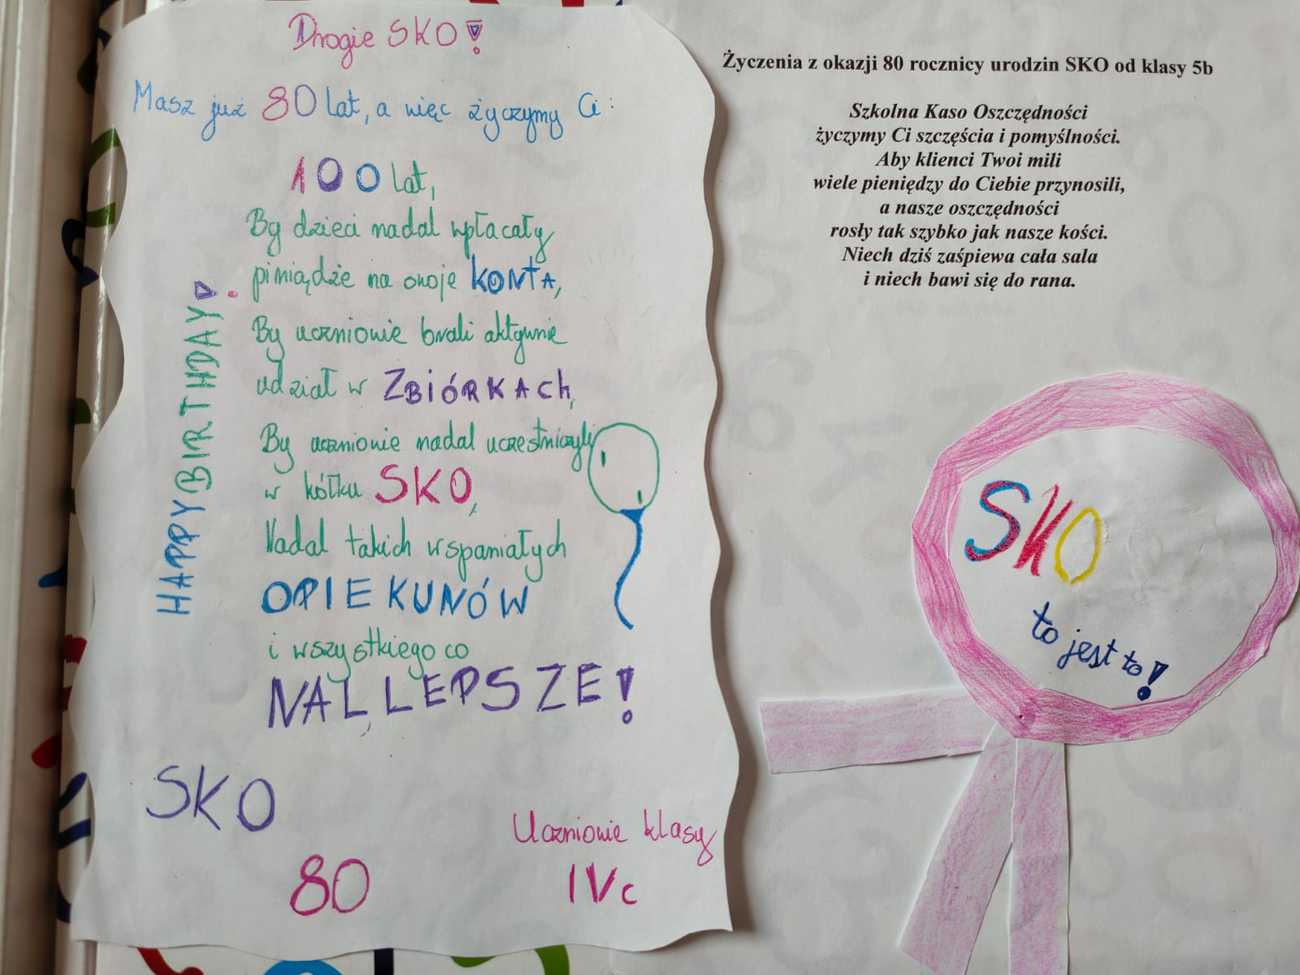 Drogie SKO!
Masz już 80 lat, a więc życzymy Ci:
100 lat,
By dzieci nadal wpłacały
piniądże na swoje KONTA,
By uczniowie brali aktywnie
udział w ZBIÓRKACH,
By uczniowie nadal uczestniczyli
w kółku SKO,
Nadal takich wspaniałych
OPIEKUNÓW
i wszystkiego co
NAJLEPSZE!
HAPPY BIRTHDAY!
SKO
80
Uczniowie klasy
IVc
Życzenia z okazji 80 rocznicy urodzin SKO od klasy 5b
Szkolna Kaso Oszczędności
życzymy Ci szczęścia i pomyślności.
Aby klienci Twoi mili
wiele pieniędzy do Ciebie przynosili,
a nasze oszczędności
rosły tak szybko jak nasze kości.
Niech dziś zaśpiewa cała sala
i niech bawi się do rana.
SKO
to jest to!